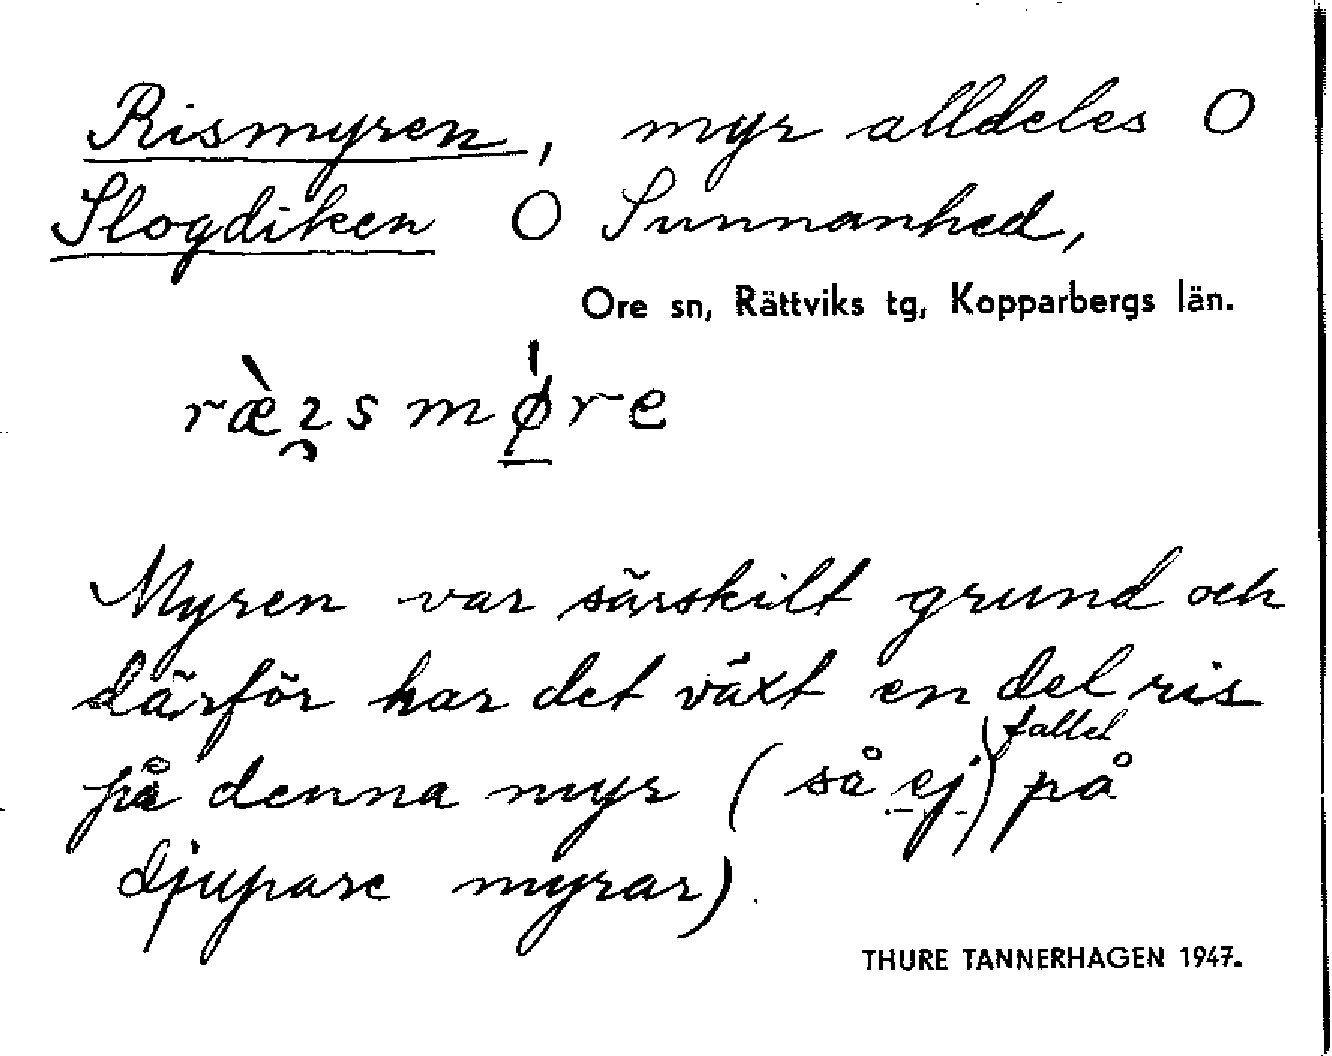 Rismyren, myr alldeles O
Slogdiken O Sunnanhed,
Ore sn, Rättviks tg, Kopparbergs län.
ræ̀ɪ̯smø̍re
Myren var särskilt grund och
därför har det växt en del ris
på denna myr (så ej fallet på
djupare myrar).
THURE TANNERHAGEN 1947.